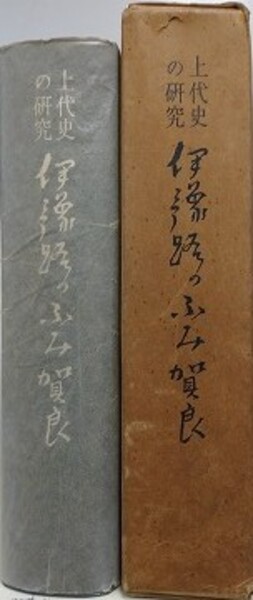 上代史
の研究
伊豫路のふみ賀良
上代史
の研究
伊豫路のふみ賀良